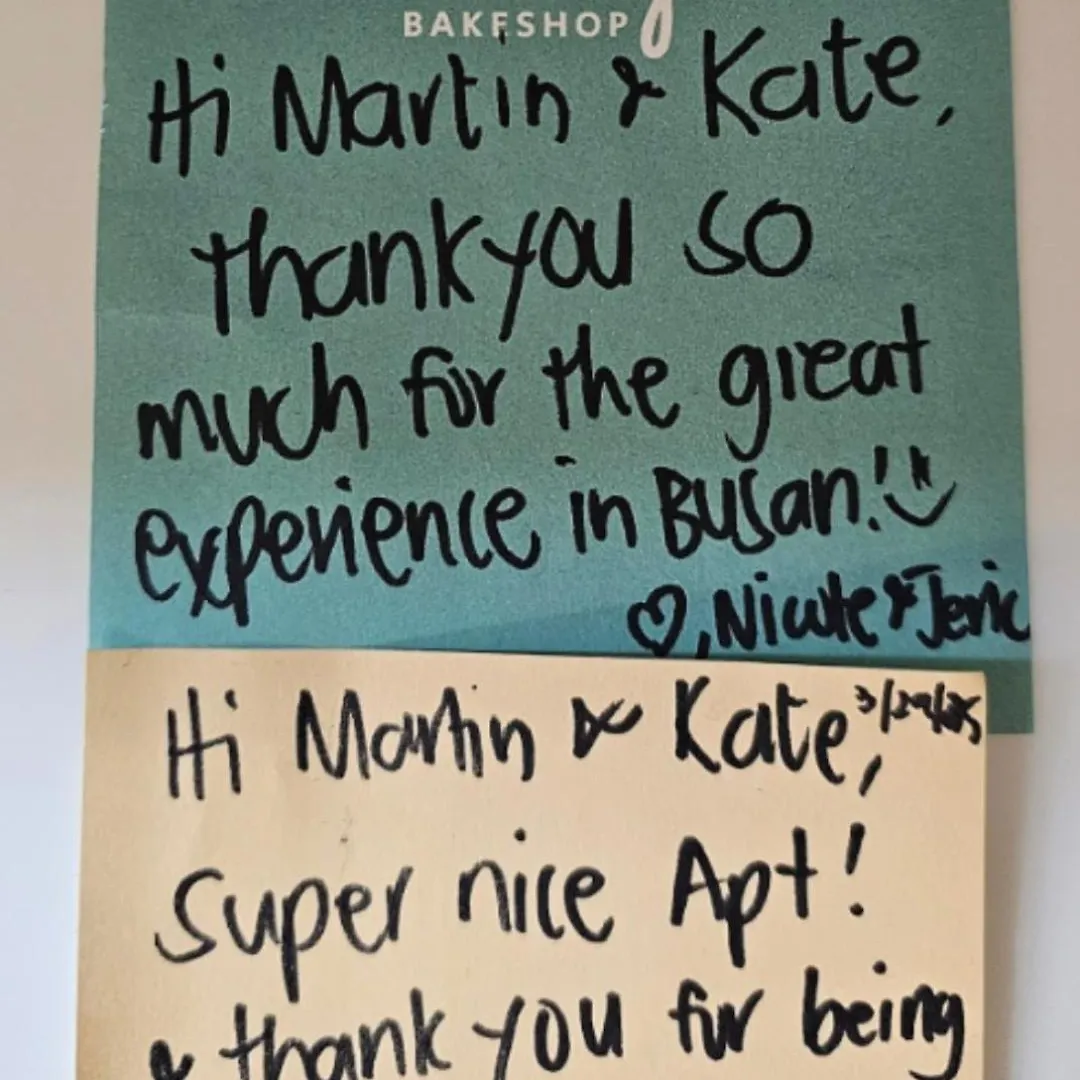 BAKESHOP
Hi Martin & Kate,
thankyou so
much for the great
experience in Busan!
♡, Nicole & Jeric
Hi Martin & Kate, 3/29/25
Super nice Apt!
& thank you for being